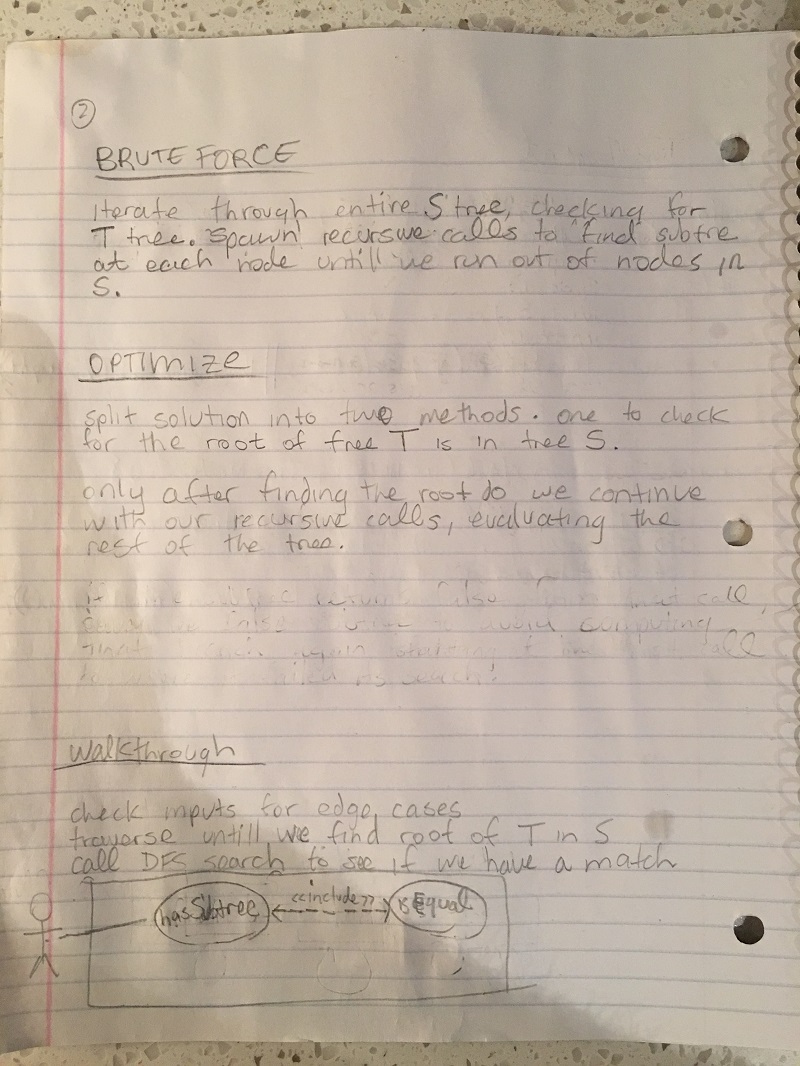 2
BRUTE FORCE
Iterate through entire S tree, checking for
T tree. Spawn recursive calls to find subtre
at each node untill we run out of nodes in
S.
OPTIMIZE
split solution into two methods. one to check
for the root of tree T is in tree S.
only after finding the root do we continue
with our recursive calls, evaluating the
rest of the tree.
if call,
avoid computing
again
search!
Walkthrough
check inputs for edge cases
traverse untill we find root of T in S
call DFS search to see if we have a match
hasSubtree <<include>> isEqual